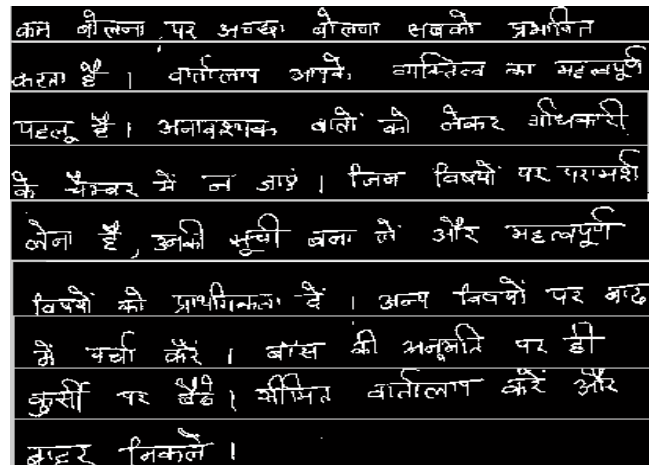 कम बोलना, पर अच्छा बोलना सबको प्रभावित
करता है । वार्तालाप आपके व्यक्तित्व का महत्वपूर्ण
पहलू है । अनावश्यक बातों को लेकर अधिकारी
के चैम्बर में न जाएं । जिन विषयों पर परामर्श
लेना है, उनकी सूची बना लें और महत्वपूर्ण
विषयों को प्राथमिकता दें । अन्य विषयों पर बाद
में चर्चा करें । बॉस की अनुमति पर ही
कुर्सी पर बैठें । सीमित वार्तालाप करें और
बाहर निकलें ।